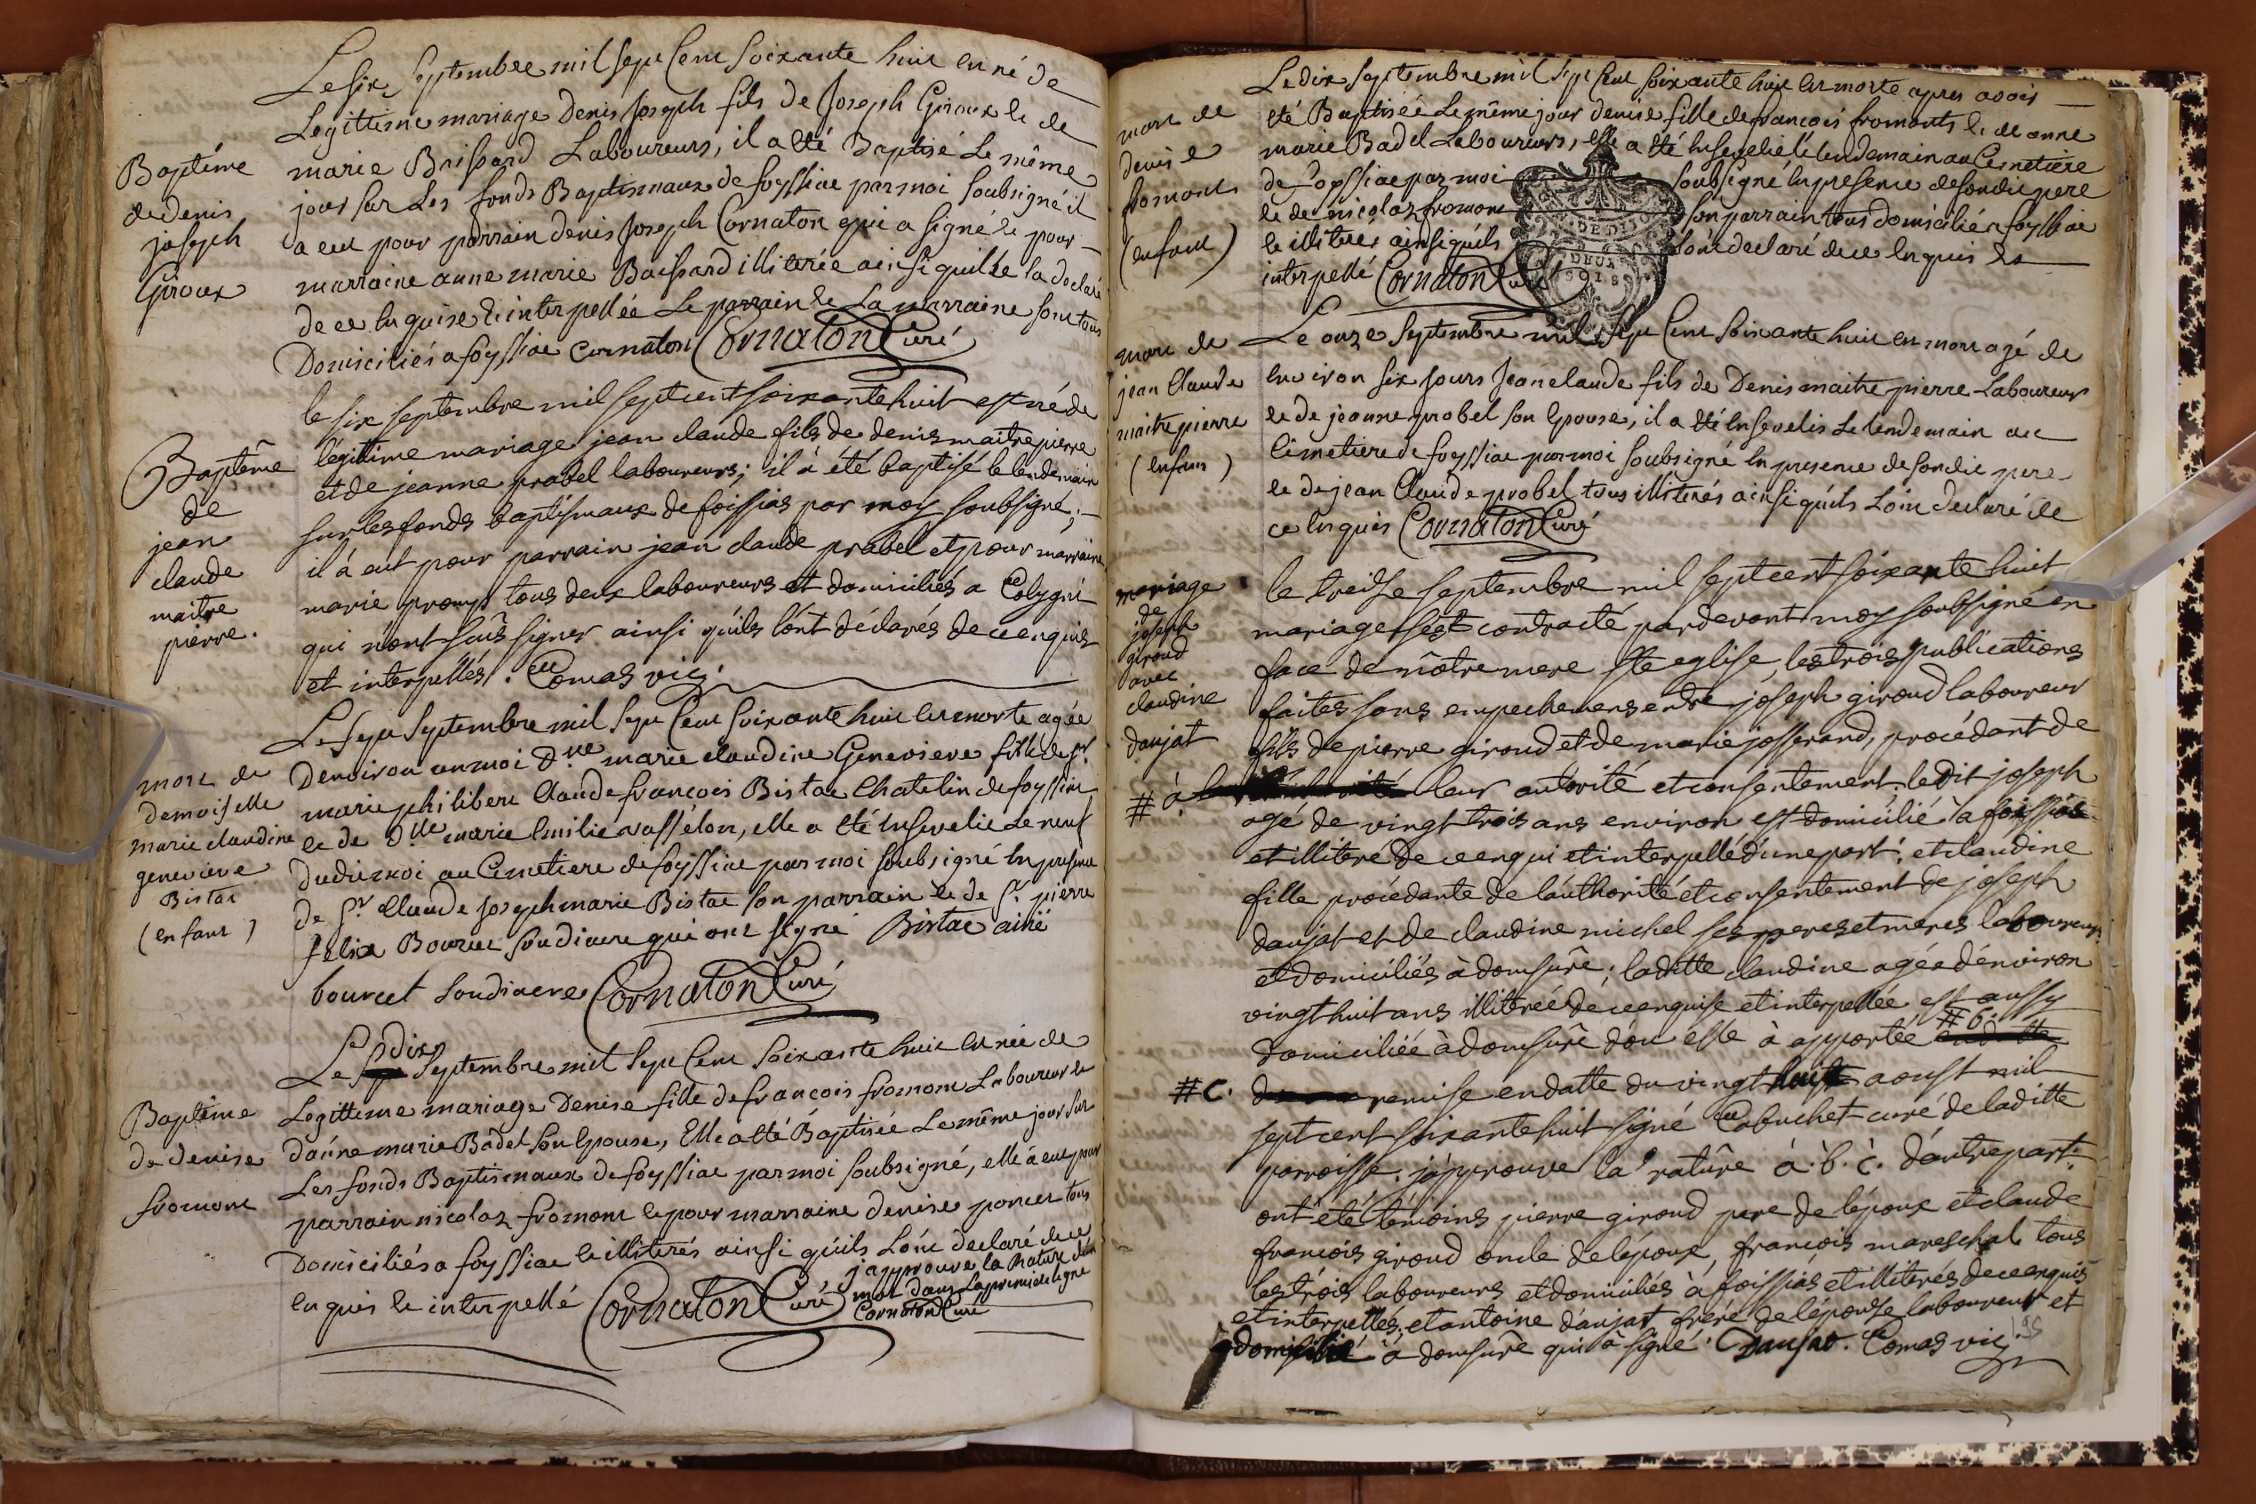 Baptême
de denis
joseph
Giroux
Le six Septembre mil sept Cent Soixante huit est né de
Legittime mariage Denis Joseph fils de Joseph Giroux et de
marie Brissard Laboureurs, il a été Baptisé Le même
jour sur Les fonds Baptismaux de foyssiac par moi soubsigné il
a eut pour parrain denis Joseph Cornaton qui a signé et pour
marraine anne marie Brissard illiterée ainsi quelle la declaré
de ce enquise et interpellée Le parrain et La marraine sont tous
Domiciliés a foyssiac Cornaton Cornaton Curé
Baptême
de
jean
claude
maitre
pierre.
le six septembre mil septcent soixante huit est né de
légitime mariage jean claude fils de denis maitrepierre
et de jeanne prabel laboureurs; il à été baptisé le lendemain
sur les fonds baptismaux de foissias par moy soubsigné;
il à eut pour parrain jean claude prabel et pour marraine
marie promp tous deux laboureurs et domiciliés a Colygni
qui n'ont sçûs signer ainsi qu'ils l'ont déclarés de ce enquis
et interpellés. Comas vic.
mort de
demoiselle
marie claudine
genevieve
Bistac
(enfant)
Le sept Septembre mil sept Cent Soixante huit est morte agée
Denviron un moi Dlle marie claudine Genevieve fille de sr
marie philibert Claude francois Bistac Chatelin de foyssiac
et de Dlle marie Emilie vassélon, elle a été Ensevelie Le neuf
Dudit moi au Cimetiere de foyssiac par moi soubsigné En presence
de Sr Claude Joseph marie Bistac son parrain et de Sr pierre
felix Bourcet soudiacre qui ont signé Bistac ainé
bourcet soudiacre Cornaton Curé
Baptême
de denise
fromont
Le dix Septembre mil sept Cent Soixante huit est née de
Legittime mariage Denise fille de francois fromont Laboureur et
d'anne marie Badel son Epouse, Elle a été Baptisée Le même jour sur
Les fonds Baptismaux de foyssiac par moi soubsigné, elle à eut pour
parrain nicolas fromont et pour marraine denise poncet tous
Domiciliés a foyssiac et illiterés ainsi qu'ils L'ont declaré de ce
enquis et interpellé Cornaton Curé
j'approuve la Rature d'un
mot dans La premiere ligne
Cornaton Curé
mort de
denise
fromont
(enfant)
Le dix septembre mil sept Cent soixante huit est morte apres avoir
été Baptisée Le même jour denise fille de francois fromont et de anne
marie Badel Laboureurs, elle a été Ensevelie le lendemain au Cimetiere
de foyssiac par moi soubsigné En presence de son dit pere
et de nicolas fromont son parrain tous domiciliés a foyssiac
et illiterés ainsi qu'ils L'ont declaré de ce enquis et
interpellé Cornaton Curé
mort de
jean Claude
maitrepierre
(enfant)
Le onze Septembre mil sept Cent soixante huit est mort agé de
environ six Jours Jean claude fils de Denis maitrepierre Laboureur
et de jeanne probel son Epouse, il a été Ensevelis Le Lendemain au
Cimetiere de foyssiac par moi soubsigné En presence de son dit pere
et de jean Claude probel tous illiterés ainsi qu'ils L'ont declaré de
ce enquis Cornaton Curé
mariage
de
joseph
giroud
avec
claudine
daujat
le treise septembre mil septcent soixante huit
mariage s'est contracté pardevant moy soubsigné en
face de nôtre mere ste eglise, les trois publications
faites sans empechemens entre joseph giroud laboureur
fils de pierre giroud et de marie josserand, procédant de
# à. leur autorité et consentement; ledit joseph
agé de vingt trois ans environ est domicilié à foissias
et illiteré de ce enqui et interpellé d'une part; et claudine
fille procédante de l'authorité et consentement de joseph
daujat et de claudine michel ses peres et meres laboureurs
et domiciliés à domsûre; laditte claudine agée d'environ
vingt huit ans illiterée de ce enquise et interpellée est aussy
domiciliée à domsûre d'ou elle à apportée # b.
# c. remise en datte du vingt huit aoust mil
septcent soixante huit signé Cabuchet curé de laditte
parroisse. j'approuve la rature à. b. c. d'autre part.
ont été témoins pierre giroud pere de l'époux et claude
françois giroud oncle de l'époux, françois mareschal tous
les trois laboureurs et domiciliés à foissias et illiterés de ce enquis
et interpellés, et antoine daujat frere de l'épouse laboureur et
domicilié à domsûre qui à signé. Daujat. Comas vic.